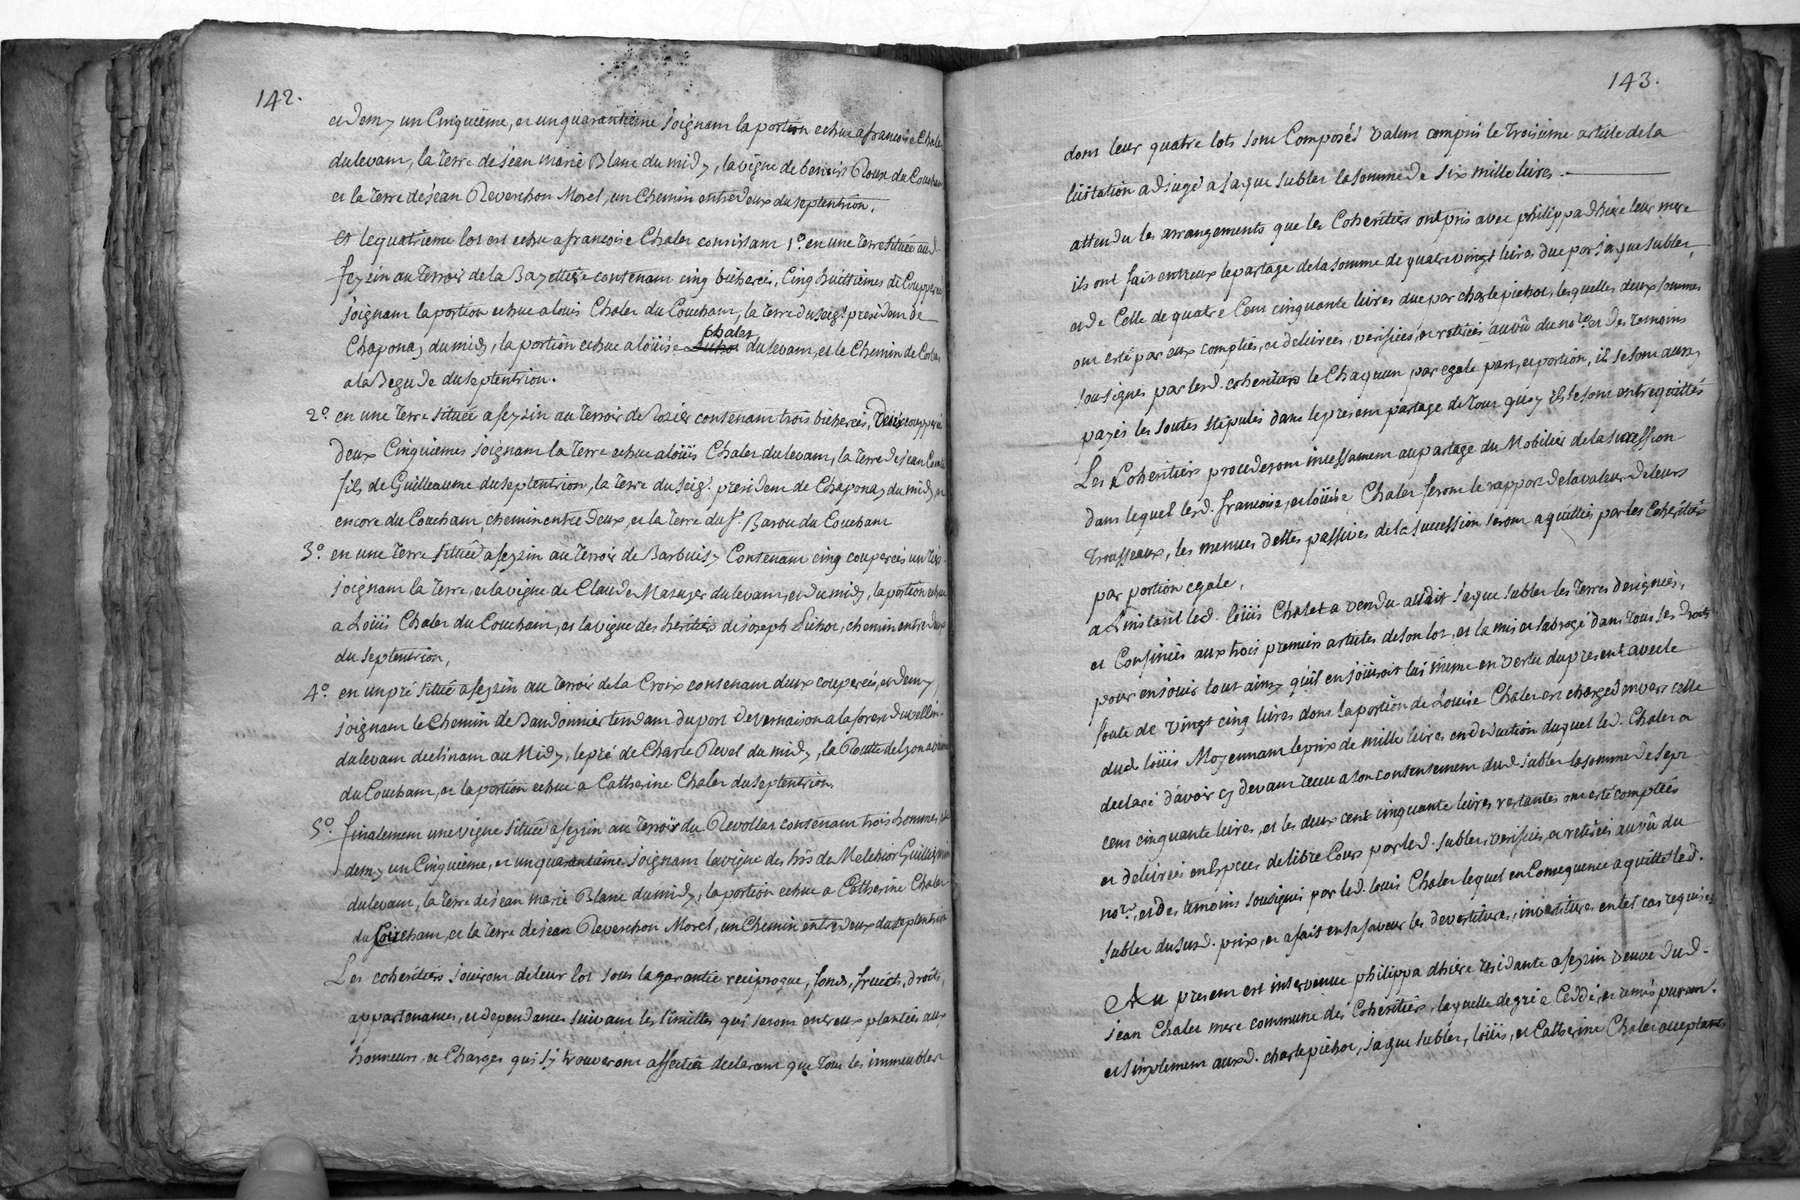 142.
et demy un Cinquiême, et un quarantiême joignant la portion echue a francoise Chalet
du levant, la terre de jean marie Blanc du midy, la vigne de benoit Roux du Couchant
et la terre de jean Reverchon Morel, un Chemin entre deux du septentrion.
Et le quatrieme lot est echu a francoise Chalet consistant 1.° en une terre située aud.
feyzin au terroir de la Bazettiere contenant cinq bicherées, Cinq huittiemes de Couppere
joignant la portion echue a louis Chalet du Couchant, la terre du seig.r president de
Chaponay du midy, la portion echue a loüise Chalet du levant, et le Chemin de Corbas
a la Begude du septentrion.
2.° en une terre située a feyzin au terroir de Rozier contenant trois bicherées, Deux coupperées
deux Cinquiemes joignant la terre echue a loüis Chalet du levant, la terre de jean
fils de Guilleaume du septentrion, la terre du seig.r president de Chaponay du midy, et
encore du Couchant, chemin entre deux, et la terre du s.r Barou du Couchant
3.° en une terre située a feyzin au terroir de Barbuisy Contenant cinq couperées un
joignant la terre, et la vigne de Claude Mazuyer du levant, et du midy, la portion echue
a Loüis Chalet du Couchant, et la vigne des heritiers de joseph Pichot, chemin entre deux
du septentrion,
4.° en un pré situé a feyzin au terroir de la Croix contenant deux couperées, et demy
joignant le Chemin de Bandonnier tendant du port de Vernaison a la forest de vellin
du levant declinant au Midy, le pré de Charle Revel du midy, la Route de lyon a vienne
du Couchant, et la portion echue a Catherine Chalet du septentrion.
5.° finalement une vigne située a feyzin au terroir du Revollet contenant trois hommes, et
demy un Cinquiême, et un quarantiême joignant la vigne des h.rs de Melchior Guillermin
du levant, la terre de jean marie Blanc du midy, la portion echue a Catherine Chalet
du Couchant, et la terre de jean Reverchon Morel, un Chemin entre deux du septentrion
Les coheritiers jouiront de leur lot sous la garantie reciproque, fond, fruict, droits,
appartenances, et dependances suivant les limittes qui seront entreux plantées aux
honneurs et Charges qui s'y trouveront affectées declarant que tous les immeubles
143.
dont leur quatre lots sont Composés valent compris le troisieme article de la
licitation adjugé a jaque sublet la somme de six mille livres.
attendu les arrangements que les Coheritiers ont pris avec philippa dhiere leur mere
ils ont fait entreux le partage de la somme de quatre vingt livres due par jaque sublet,
et de Celle de quatre Cent cinquante livres due par charle pichot, lesquelles deux sommes
ont esté par eux comptées, et delivrées, verifiées, et retirées au vû du no.re et des temoins
sousignes par lesd. coheritiers le Chaqun par egale part, et portion, ils se sont aussy
payés les soutes stipulés dans le present partage de tout quoy ils se sont entrequittés
Les Coheritiers procederont incessament au partage du Mobilier de la succession
dans lequel lesd. francoise, et loüise Chalet feront le rapport de la valeur de leurs
trousseaux, les menues dettes passives de la succession seront aquittées par les Coheritiers
par portion egale.
a Linstant led. loüis Chalet a vendu audit jaque sublet les terres designées,
et Confinées aux trois premiers articles de son lot, et la mis et subrogé dans tous ses droits
pour en jouir tout ainsy qu'il en joüiroit lui même en vertu du present avec le
soute de vingt cinq livres dont la portion de Louise Chalet est chargée envers celle
dud loüis Moyennant le prix de mille livres en deduction duquel led. Chalet a
declaré d'avoir cy devant receu a son contentement dud sublet la somme de sept
cent cinquante livres, et les deux cent cinquante livres restantes ont esté comptées
et delivrées en Especes de libre Cours par led. sublet, verifiées, et retirées au vû du
no.re, et des temoins sousignes par led. louis Chalet lequel en Consequence a quitté led.
sublet du susd. prix, et a fait en sa faveur les devestitures, investitures en tel cas requises
Au present est intervenue philippa dhiere residante a feyzin veuve dud.
jean Chalet mere commune des Coheritiers, laquelle de gré a Cedé, et remis purem.t
et simplement auxd. charle pichot, jaque sublet, loüis, et Catherine Chalet acceptants